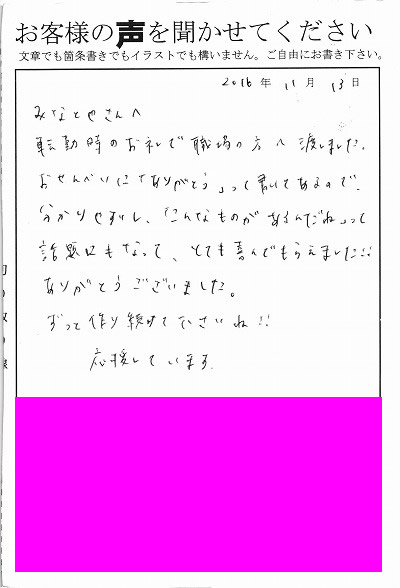 お客様の声を聞かせてください
文章でも箇条書きでもイラストでも構いません。ご自由にお書き下さい。
2016年 11月 13日
みなとやさんへ
転勤時のお礼で職場の方へ渡しました。
おせんべいに「ありがとう」って書いてあるので、
分かりやすいし、「こんなものがあるんだね」って
話題にもなって、とても喜んでもらえました!!
ありがとうございました。
ずっと作り続けて下さいね!!
応援しています。